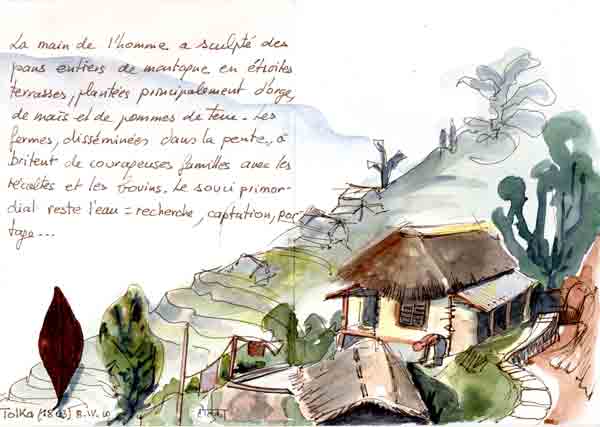 La main de l'homme a sculpté des
pans entiers de montagne en étroites
terrasses, plantées principalement d'orge,
de maïs et de pommes de terre. Les
fermes, disséminées dans la pente, a-
britent de courageuses familles avec les
récoltes et les bovins. Le souci primor-
dial reste l'eau = recherche, captation, por
tage...
Tolka